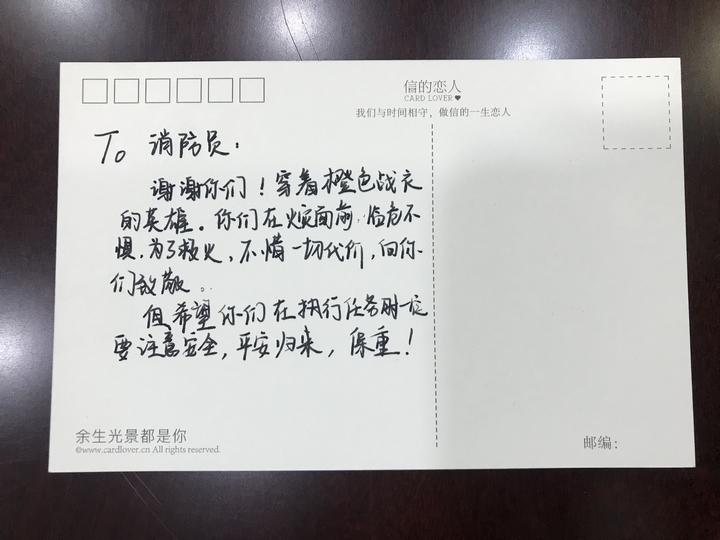 信的恋人
CARD LOVER♥
我们与时间相守，做信的一生恋人
To 消防员：
谢谢你们！穿着橙色战衣
的英雄。你们在火灾面前 临危不
惧，为了救火，不惜一切代价，向你
们致敬。
但希望你们在执行任务时一定
要注意安全，平安归来，保重！
余生光景都是你
©www.cardlover.cn All rights reserved.
邮编：